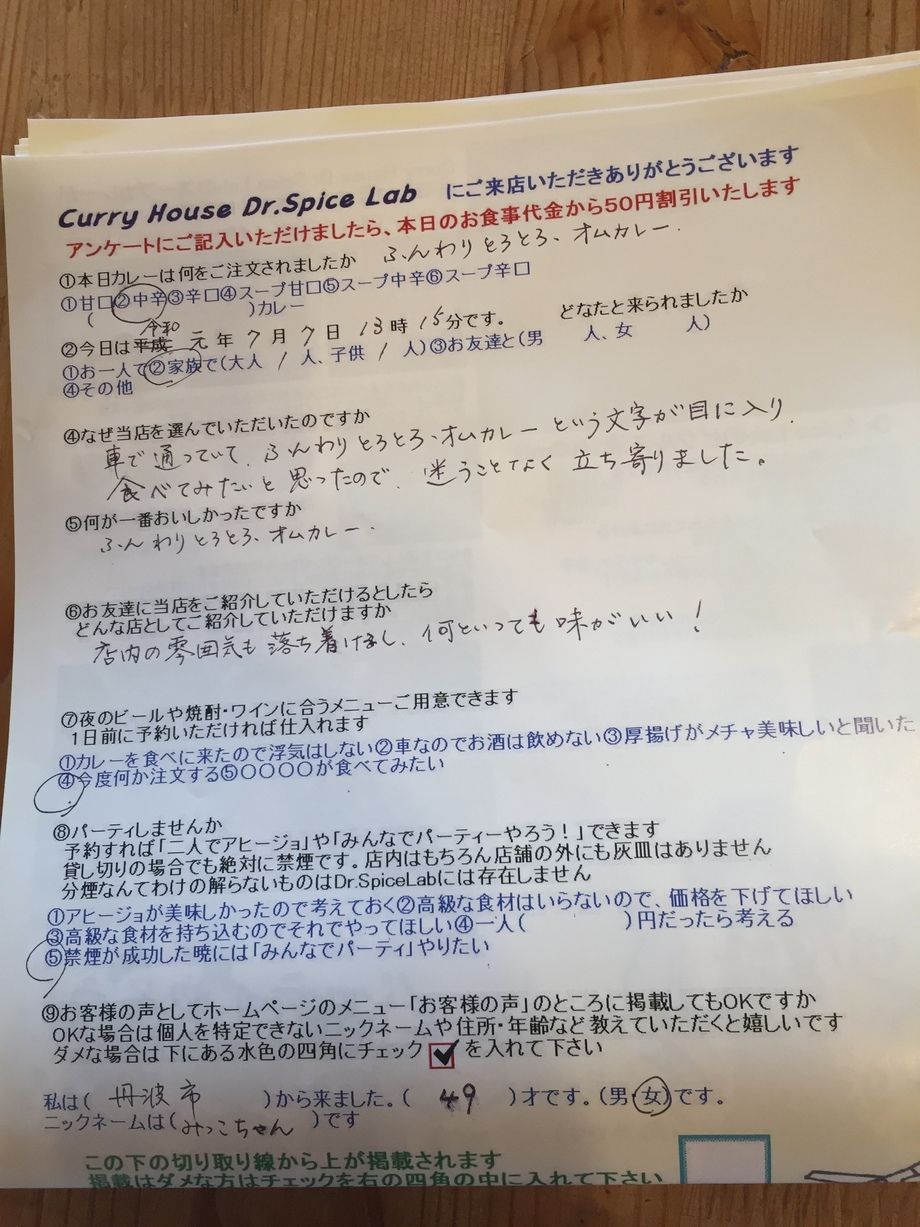 Curry House Dr.Spice Lab にご来店いただきありがとうございます
アンケートにご記入いただけましたら、本日のお食事代金から50円割引いたします
①本日カレーは何をご注文されましたか ふんわりとろとろ、オムカレー.
①甘口②中辛③辛口④スープ甘口⑤スープ中辛⑥スープ辛口
( )カレー
令和
②今日は平成 元年7月7日13時15分です。 どなたと来られましたか
①お一人で②家族で(大人 1 人、子供 1 人)③お友達と(男 人、女 人)
④その他
④なぜ当店を選んでいただいたのですか
車で通っていて、ふんわりとろとろ、オムカレーという文字が目に入り、
食べてみたいと思ったので、迷うことなく立ち寄りました。
⑤何が一番おいしかったですか
ふんわりとろとろ、オムカレー.
⑥お友達に当店をご紹介していただけるとしたら
どんな店としてご紹介していただけますか
店内の雰囲気も落ち着けるし、何といっても味がいい!
⑦夜のビールや焼酎・ワインに合うメニューご用意できます
1日前に予約いただければ仕入れます
①カレーを食べに来たので浮気はしない②車なのでお酒は飲めない③厚揚げがメチャ美味しいと聞いた
④今度何か注文する⑤〇〇〇〇が食べてみたい
⑧パーティしませんか
予約すれば「二人でアヒージョ」や「みんなでパーティーやろう!」できます
貸し切りの場合でも絶対に禁煙です。店内はもちろん店舗の外にも灰皿はありません
分煙なんてわけの解らないものはDr.SpiceLabには存在しません
①アヒージョが美味しかったので考えておく②高級な食材はいらないので、価格を下げてほしい
③高級な食材を持ち込むのでそれでやってほしい④一人( )円だったら考える
⑤禁煙が成功した暁には「みんなでパーティ」やりたい
⑨お客様の声としてホームページのメニュー「お客様の声」のところに掲載してもOKですか
OKな場合は個人を特定できないニックネームや住所・年齢など教えていただくと嬉しいです
ダメな場合は下にある水色の四角にチェック を入れて下さい
私は( 丹波市 )から来ました。( 49 )才です。(男・女)です。
ニックネームは(みっこちゃん )です
この下の切り取り線から上が掲載されます
掲載はダメな方はチェックを右の四角の中に入れて下さい